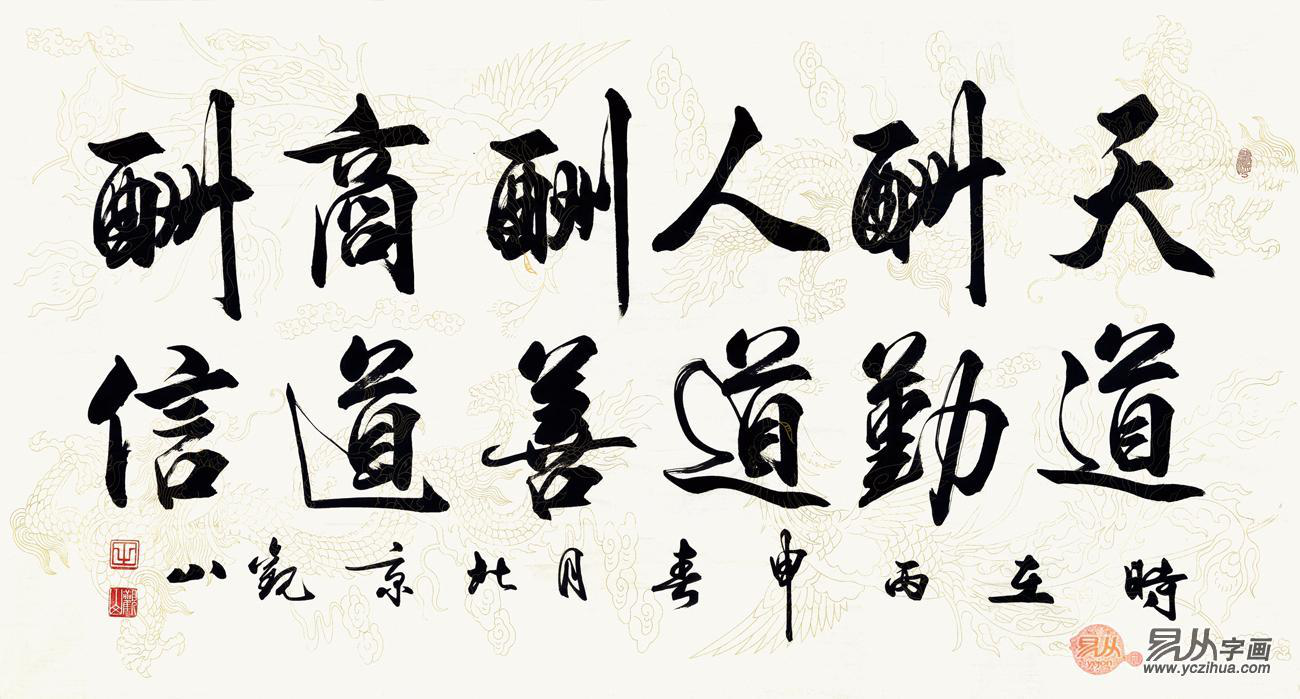 天道酬勤
人道酬善
商道酬信
時在丙申春月北京觀山
易从字画
www.yczihua.com